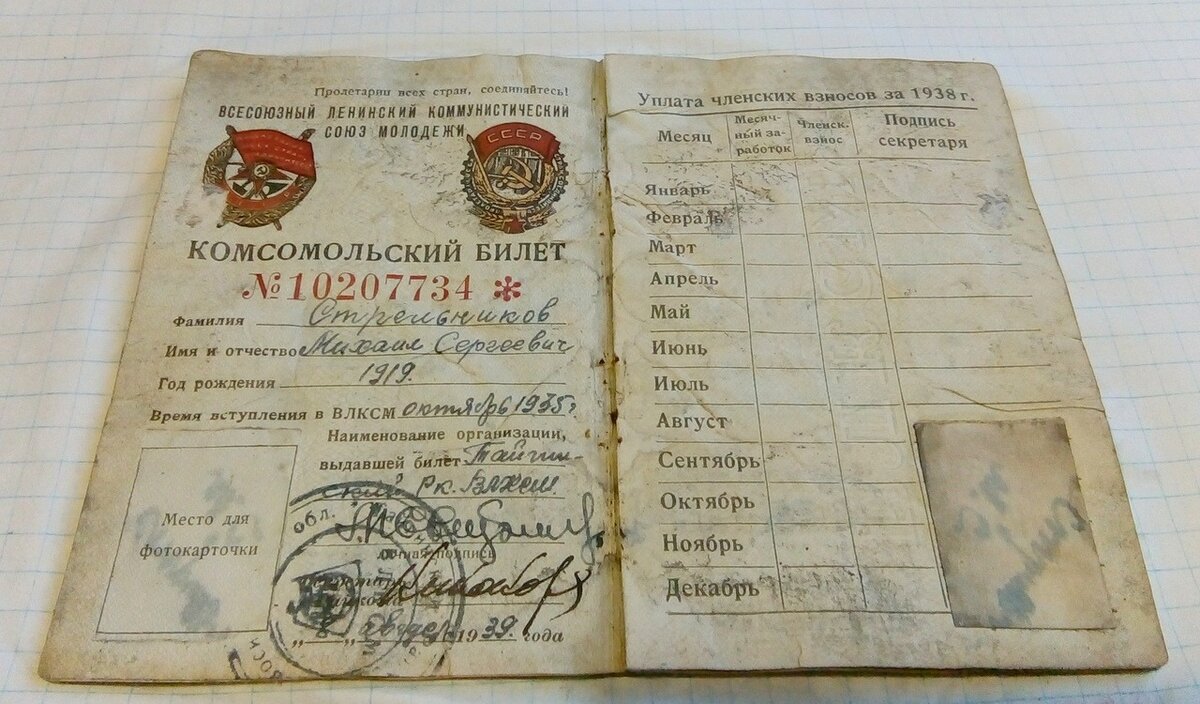 Пролетарии всех стран, соединяйтесь!
ВСЕСОЮЗНЫЙ ЛЕНИНСКИЙ КОММУНИСТИЧЕСКИЙ
СОЮЗ МОЛОДЕЖИ
СССР
КОМСОМОЛЬСКИЙ БИЛЕТ
№10207734 *
Фамилия Стрельников
Имя и отчество Михаил Сергеевич
Год рождения 1919.
Время вступления в ВЛКСМ октябрь 1935 г
Наименование организации,
выдавшей билет
Рк. ВЛКСМ
обл.
личная подпись
Место для
фотокарточки
1939. года
Уплата членских взносов за 1938 г.
Месяц
Месяч-
ный за-
работок
Членск.
взнос
Подпись
секретаря
Январь
Февраль
Март
Апрель
Май
Июнь
Июль
Август
Сентябрь
Октябрь
Ноябрь
Декабрь